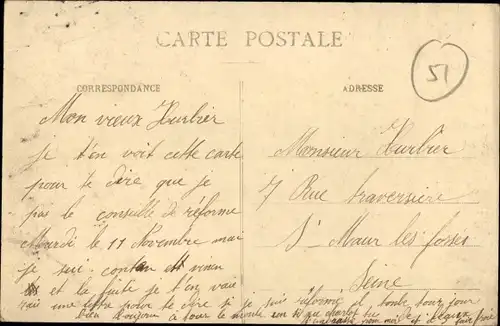 CARTE POSTALE
51
CORRESPONDANCE
ADRESSE
Mon vieux Hurbier
je t'en voit cette carte
pour te dire que je
pas le conseille de réforme
Mardi le 11 Novembre mai
je sui contan et vien
et la suite je t'en vaie
rais une lettre pour te dire si je suis réformé
bien bonjour à tour le monde
Monsieur Hurbier
7 Rue traversière
St Maur les fosses
Seine